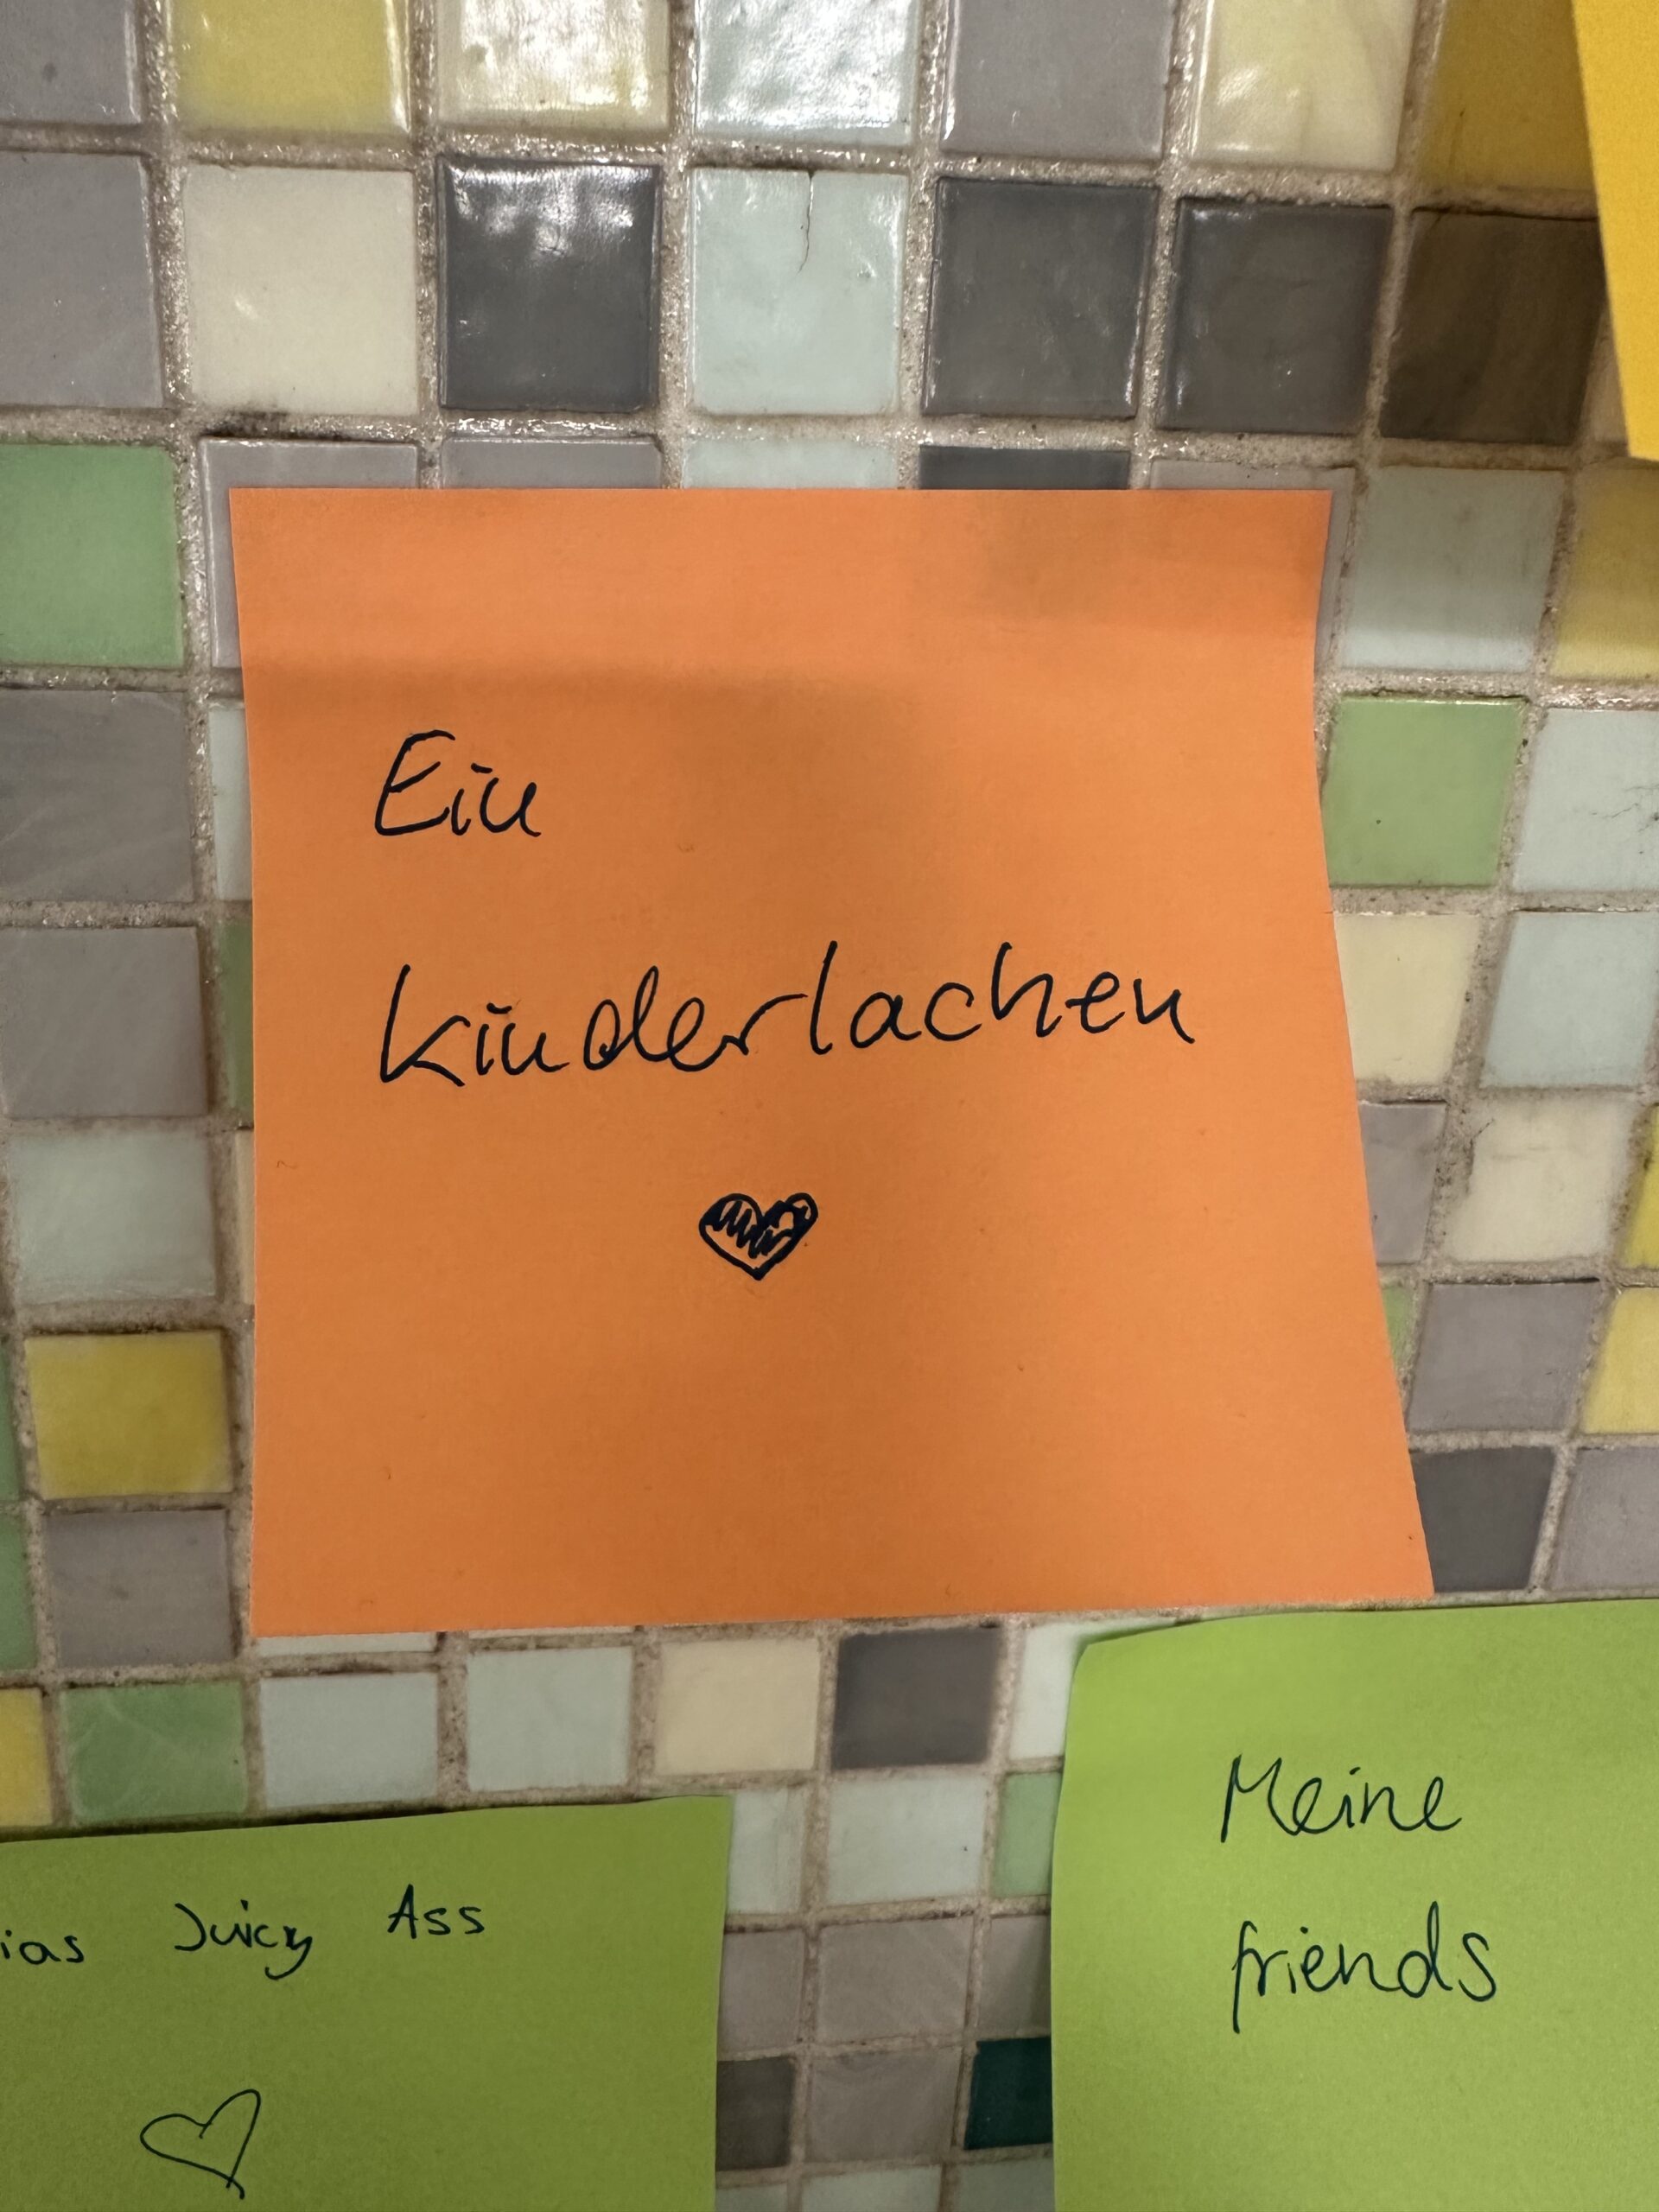 Ein
Kinderlachen
ias Juicy Ass
Meine
friends